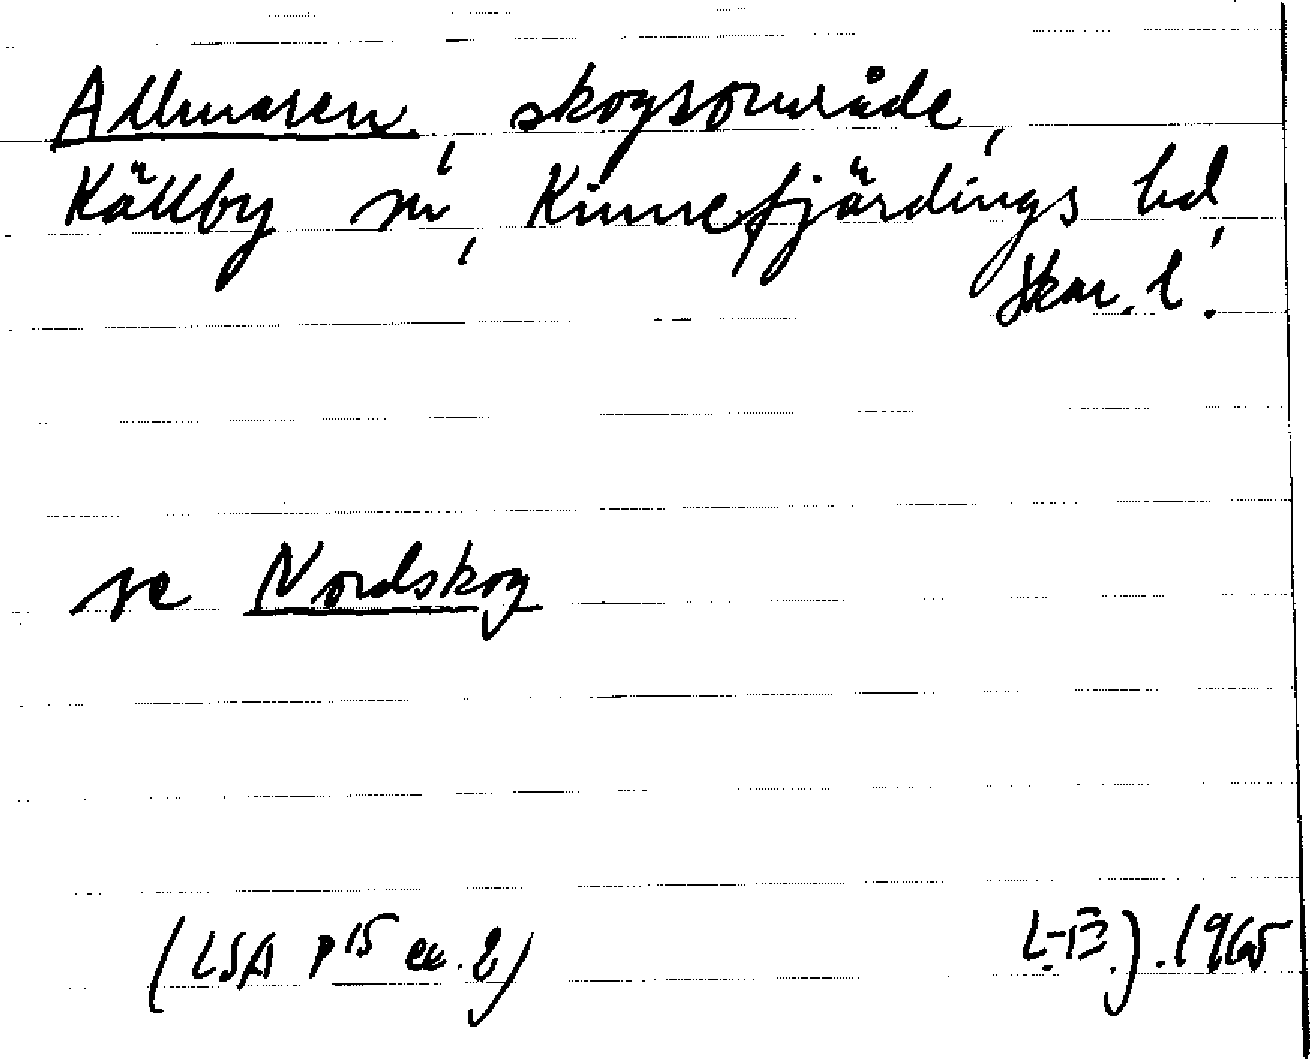 Allmasen, skogsområde,
Källby sn, Kinnefjärdings hd,
Skar. l.
se Nordskog
(LSA P 15
L-B.J. 1965